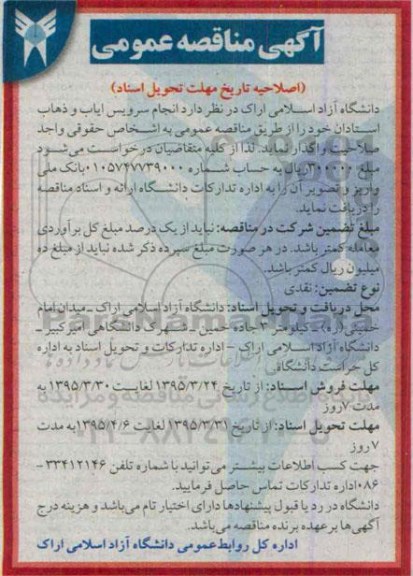 آگهی مناقصه عمومی
(اصلاحیه تاریخ مهلت تحویل اسناد)
دانشگاه آزاد اسلامی اراک در نظر دارد انجام سرویس ایاب و ذهاب
استادان خود را از طریق مناقصه عمومی به اشخاص حقوقی واجد
صلاحیت واگذار نماید. لذا از کلیه متقاضیان درخواست می‌شود
مبلغ ۳۰۰۰۰۰ ریال به حساب شماره ۰۱۰۵۷۴۷۷۳۹۰۰۰ بانک ملی
واریز و تصویر آن را به اداره تدارکات دانشگاه ارائه و اسناد مناقصه
را دریافت نماید.
مبلغ تضمین شرکت در مناقصه: نباید از یک درصد مبلغ کل برآوردی
معامله کمتر باشد. در هر صورت مبلغ سپرده ذکر شده نباید از مبلغ ده
میلیون ریال کمتر باشد.
نوع تضمین: نقدی
محل دریافت و تحویل اسناد: دانشگاه آزاد اسلامی اراک - میدان امام
خمینی(ره) - کیلومتر ۳ جاده خمین - شهرک دانشگاهی امیرکبیر -
دانشگاه آزاد اسلامی اراک - اداره تدارکات و تحویل اسناد به اداره
کل حراست دانشگاه
مهلت فروش اسناد: از تاریخ ۱۳۹۵/۳/۲۴ لغایت ۱۳۹۵/۳/۳۰ به
مدت ۷ روز
مهلت تحویل اسناد: از تاریخ ۱۳۹۵/۳/۳۱ لغایت ۱۳۹۵/۴/۶ به مدت
۷ روز
جهت کسب اطلاعات بیشتر می‌توانید با شماره تلفن ۳۳۴۱۲۱۴۶ -
۰۸۶ اداره تدارکات تماس حاصل فرمایید.
دانشگاه در رد یا قبول پیشنهادها دارای اختیار تام می‌باشد و هزینه درج
آگهی‌ها بر عهده برنده مناقصه می‌باشد.
اداره کل روابط عمومی دانشگاه آزاد اسلامی اراک